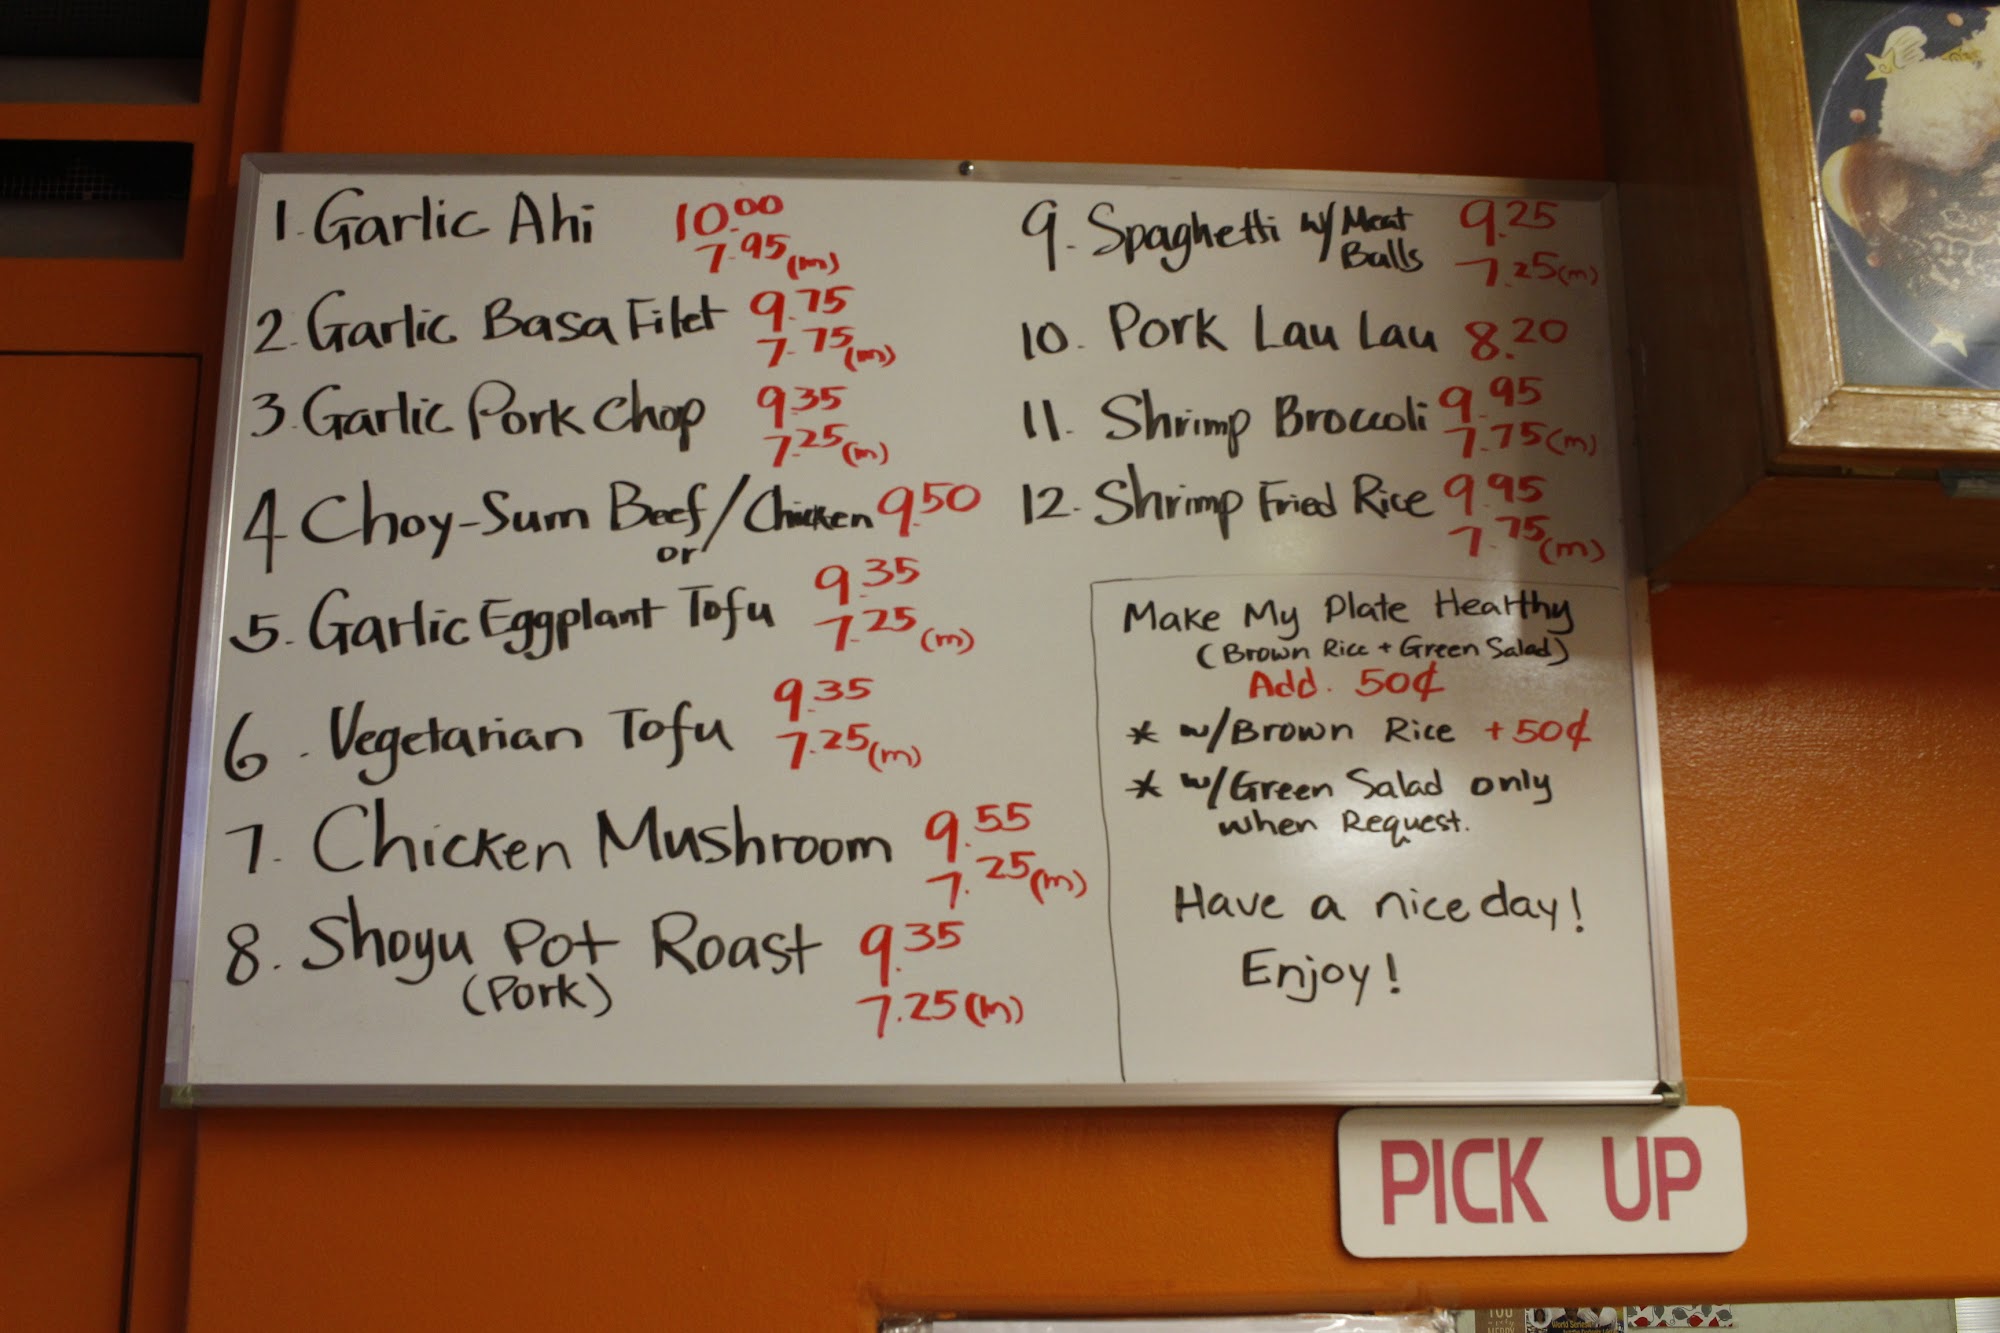 1. Garlic Ahi 10.00
7.95 (m)
2. Garlic Basa Filet 9.75
7.75 (m)
3. Garlic Pork Chop 9.35
7.25 (m)
4 Choy-Sum Beef / Chicken 9.50
or
5. Garlic Eggplant Tofu 9.35
7.25 (m)
6. Vegetarian Tofu 9.35
7.25 (m)
7. Chicken Mushroom 9.55
7.25 (m)
8. Shoyu Pot Roast 9.35
(Pork)
7.25 (m)
9. Spaghetti w/ Meat 9.25
Balls 7.25 (m)
10. Pork Lau Lau 8.20
11. Shrimp Broccoli 9.95
7.75 (m)
12. Shrimp Fried Rice 9.95
7.75 (m)
Make My Plate Healthy
(Brown Rice + Green Salad)
Add. 50¢
* w/Brown Rice +50¢
* w/Green Salad only
when Request.
Have a nice day!
Enjoy!
PICK UP